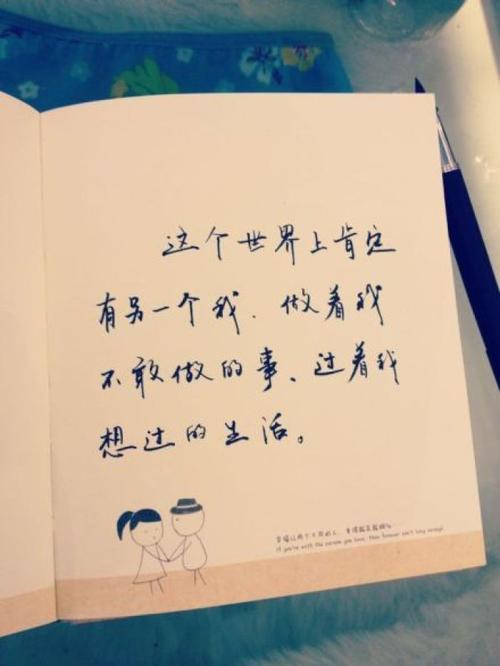 这个世界上肯定
有另一个我、做着我
不敢做的事、过着我
想过的生活。
If you're with the person you love, then forever isn't long enough.